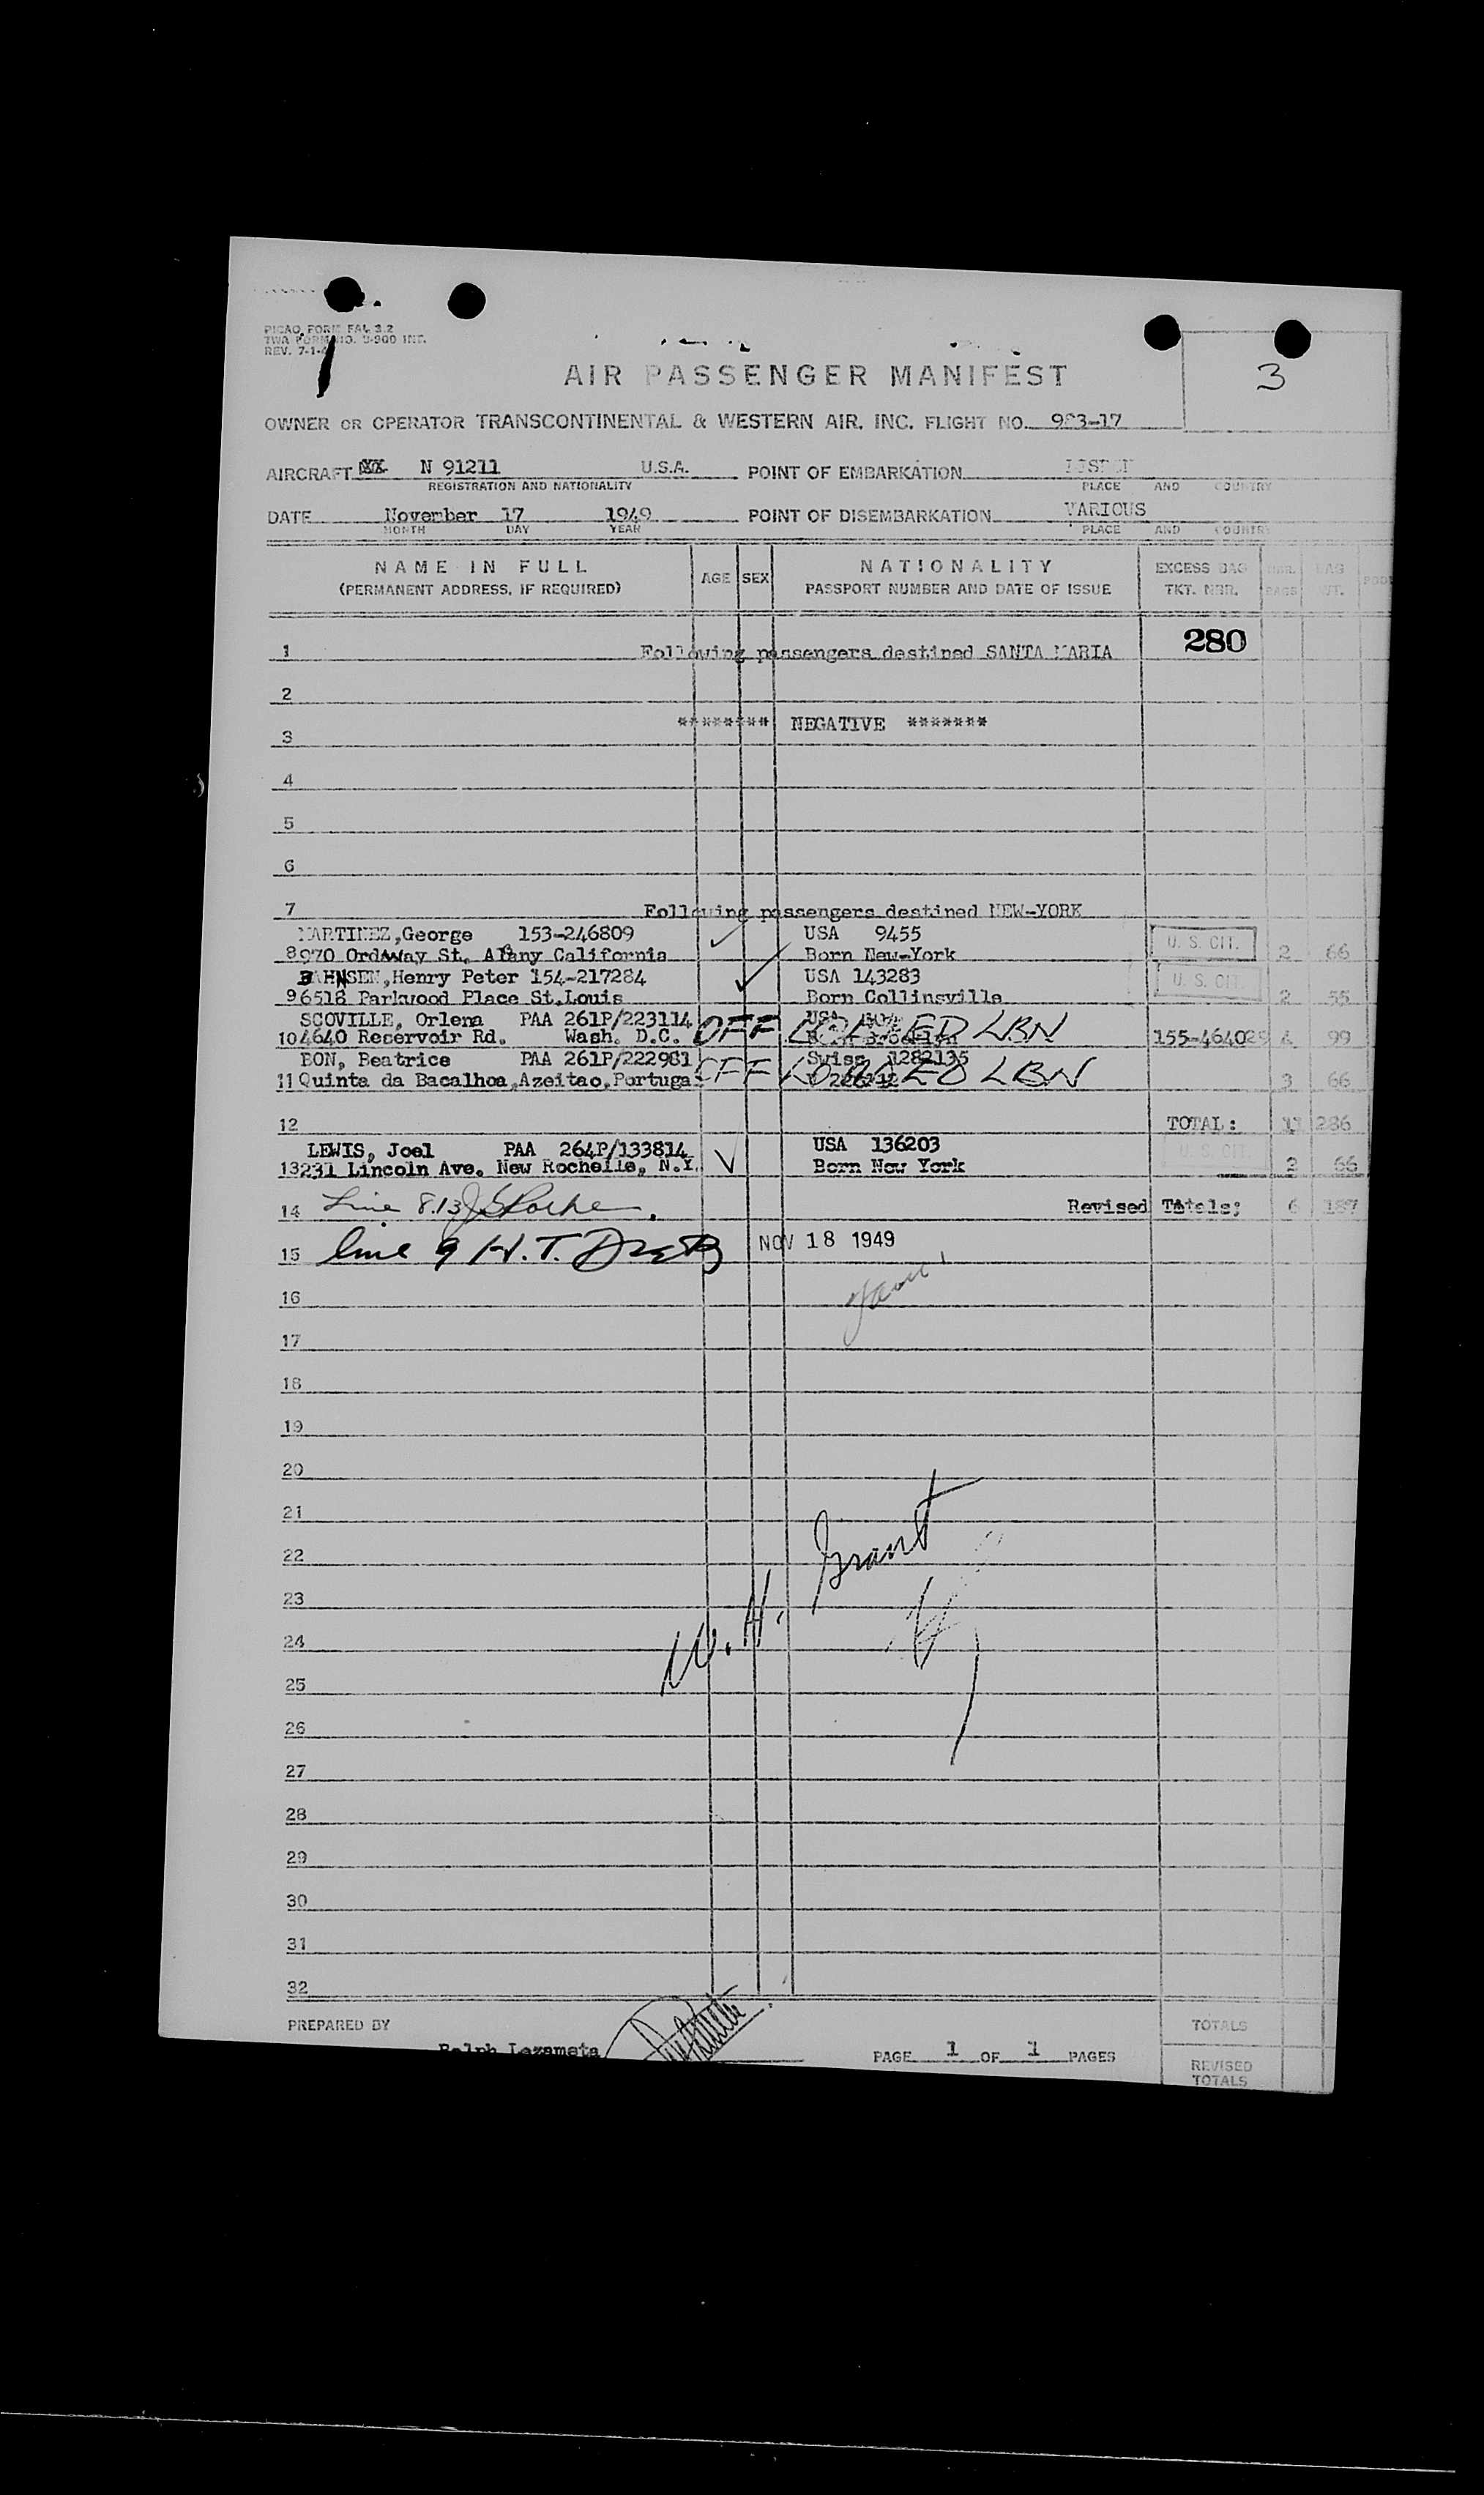 PICAO FORM FAL 3.2
TWA FORM NO. U-900 INT.
REV. 7-1-
3
AIR PASSENGER MANIFEST
OWNER OR OPERATOR TRANSCONTINENTAL & WESTERN AIR, INC. FLIGHT NO. 983-17
AIRCRAFT XX N 91211 U.S.A. POINT OF EMBARKATION LISBON
REGISTRATION AND NATIONALITY PLACE AND COUNTRY
DATE November 17 1949 POINT OF DISEMBARKATION VARIOUS
MONTH DAY YEAR PLACE AND COUNTRY
NAME IN FULL AGE SEX NATIONALITY EXCESS BAG NBR. BAG
(PERMANENT ADDRESS, IF REQUIRED) PASSPORT NUMBER AND DATE OF ISSUE TKT. NBR. BAGS WT.
280
1 Following passengers destined SANTA MARIA
2
3 ******** NEGATIVE *******
4
5
6
7 Following passengers destined NEW-YORK
MARTINEZ,George 153-246809 USA 9455 U. S. CIT.
8 970 Ordway St. Albany California Born New-York 2 66
BAHNSEN,Henry Peter 154-217284 USA 143283 U. S. CIT.
9 6518 Parkwood Place St.Louis Born Collinsville 2 55
SCOVILLE, Orlena PAA 261P/223114 USA OFF LOADED LBN
10 4640 Reservoir Rd. Wash. D.C. Born Brooklyn 155-464029 4 99
BON, Beatrice PAA 261P/222981 Swiss 1282135 OFF LOADED LBN
11 Quinta da Bacalhoa,Azeitao,Portugal 3 66
12 TOTAL: 11 286
LEWIS, Joel PAA 264P/133814 USA 136203 U. S. CIT.
13 231 Lincoln Ave. New Rochelle, N.Y. Born New York 2 66
14 Line 8.13 Revised Totals; 6 187
15 line 9 H.T. NOV 18 1949
16
17
18
19
20
21
22
23
24
W. H. Grant
25
26
27
28
29
30
31
32
PREPARED BY TOTALS
Ralph Lezameta PAGE 1 OF 1 PAGES
REVISED
TOTALS